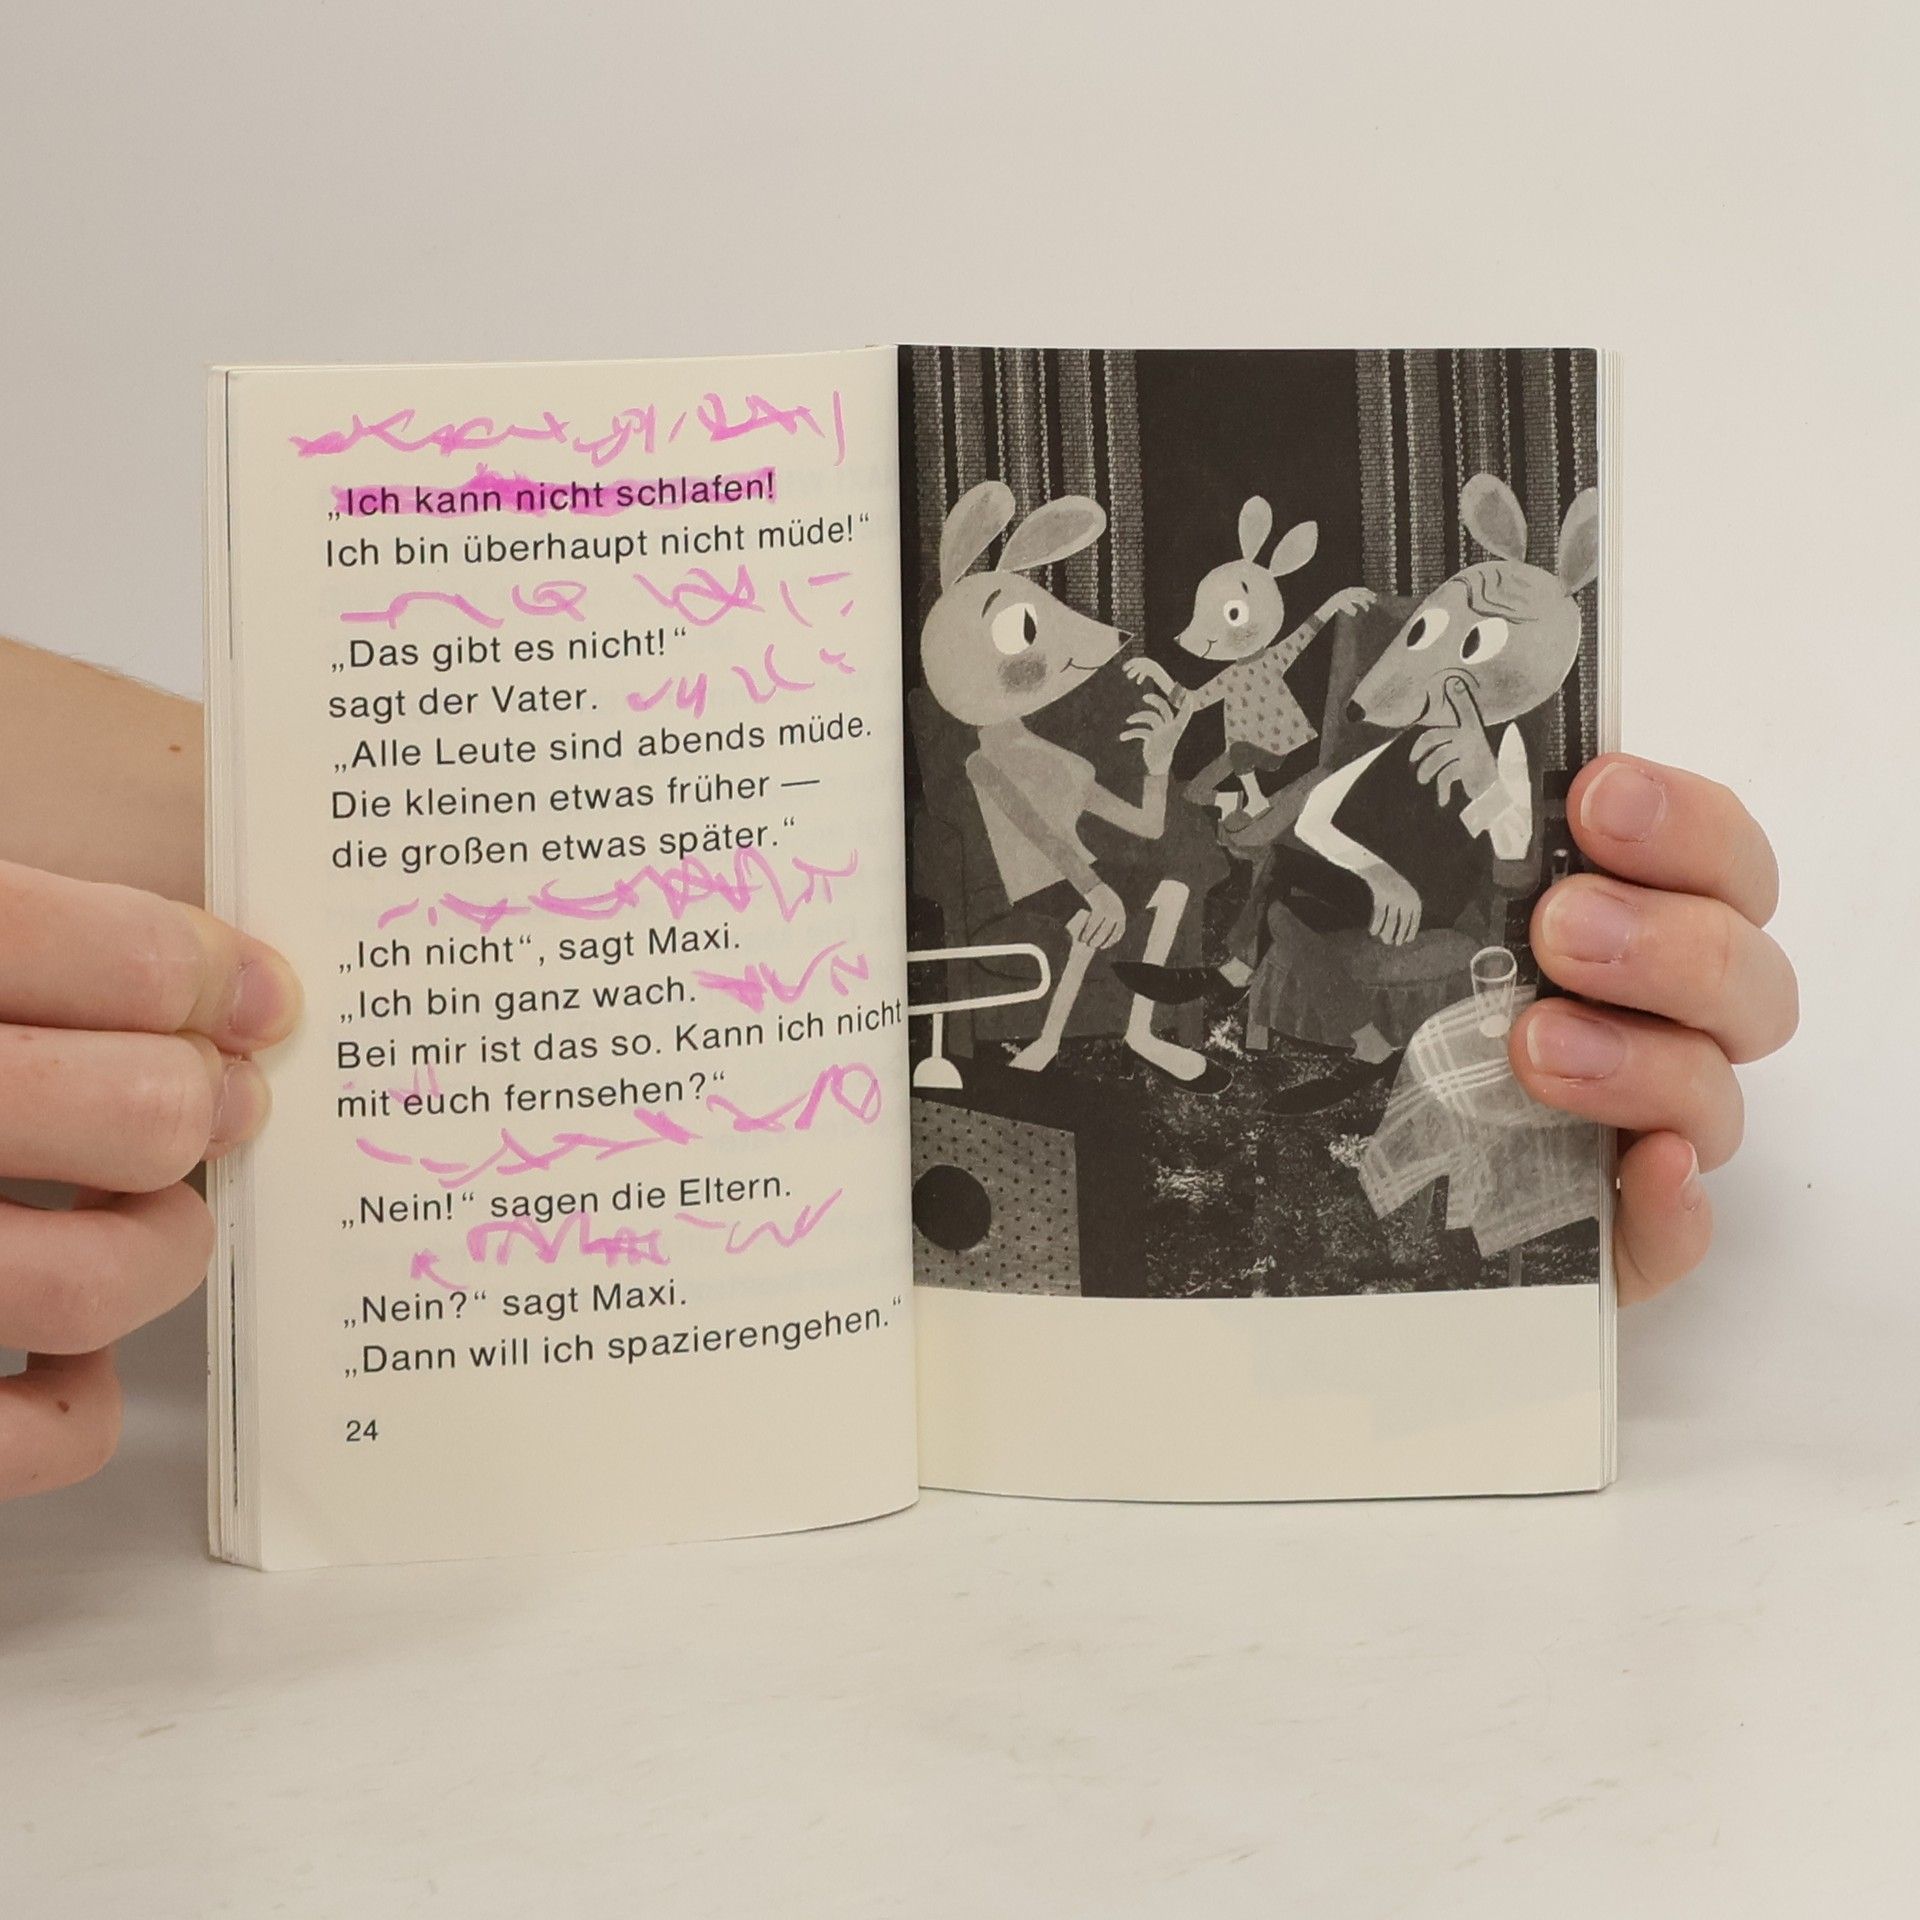 „Ich kann nicht schlafen!
Ich bin überhaupt nicht müde!“
„Das gibt es nicht!“
sagt der Vater.
„Alle Leute sind abends müde.
Die kleinen etwas früher —
die großen etwas später.“
„Ich nicht“, sagt Maxi.
„Ich bin ganz wach.
Bei mir ist das so. Kann ich nicht
mit euch fernsehen?“
„Nein!“ sagen die Eltern.
„Nein?“ sagt Maxi.
„Dann will ich spazierengehen.“
24